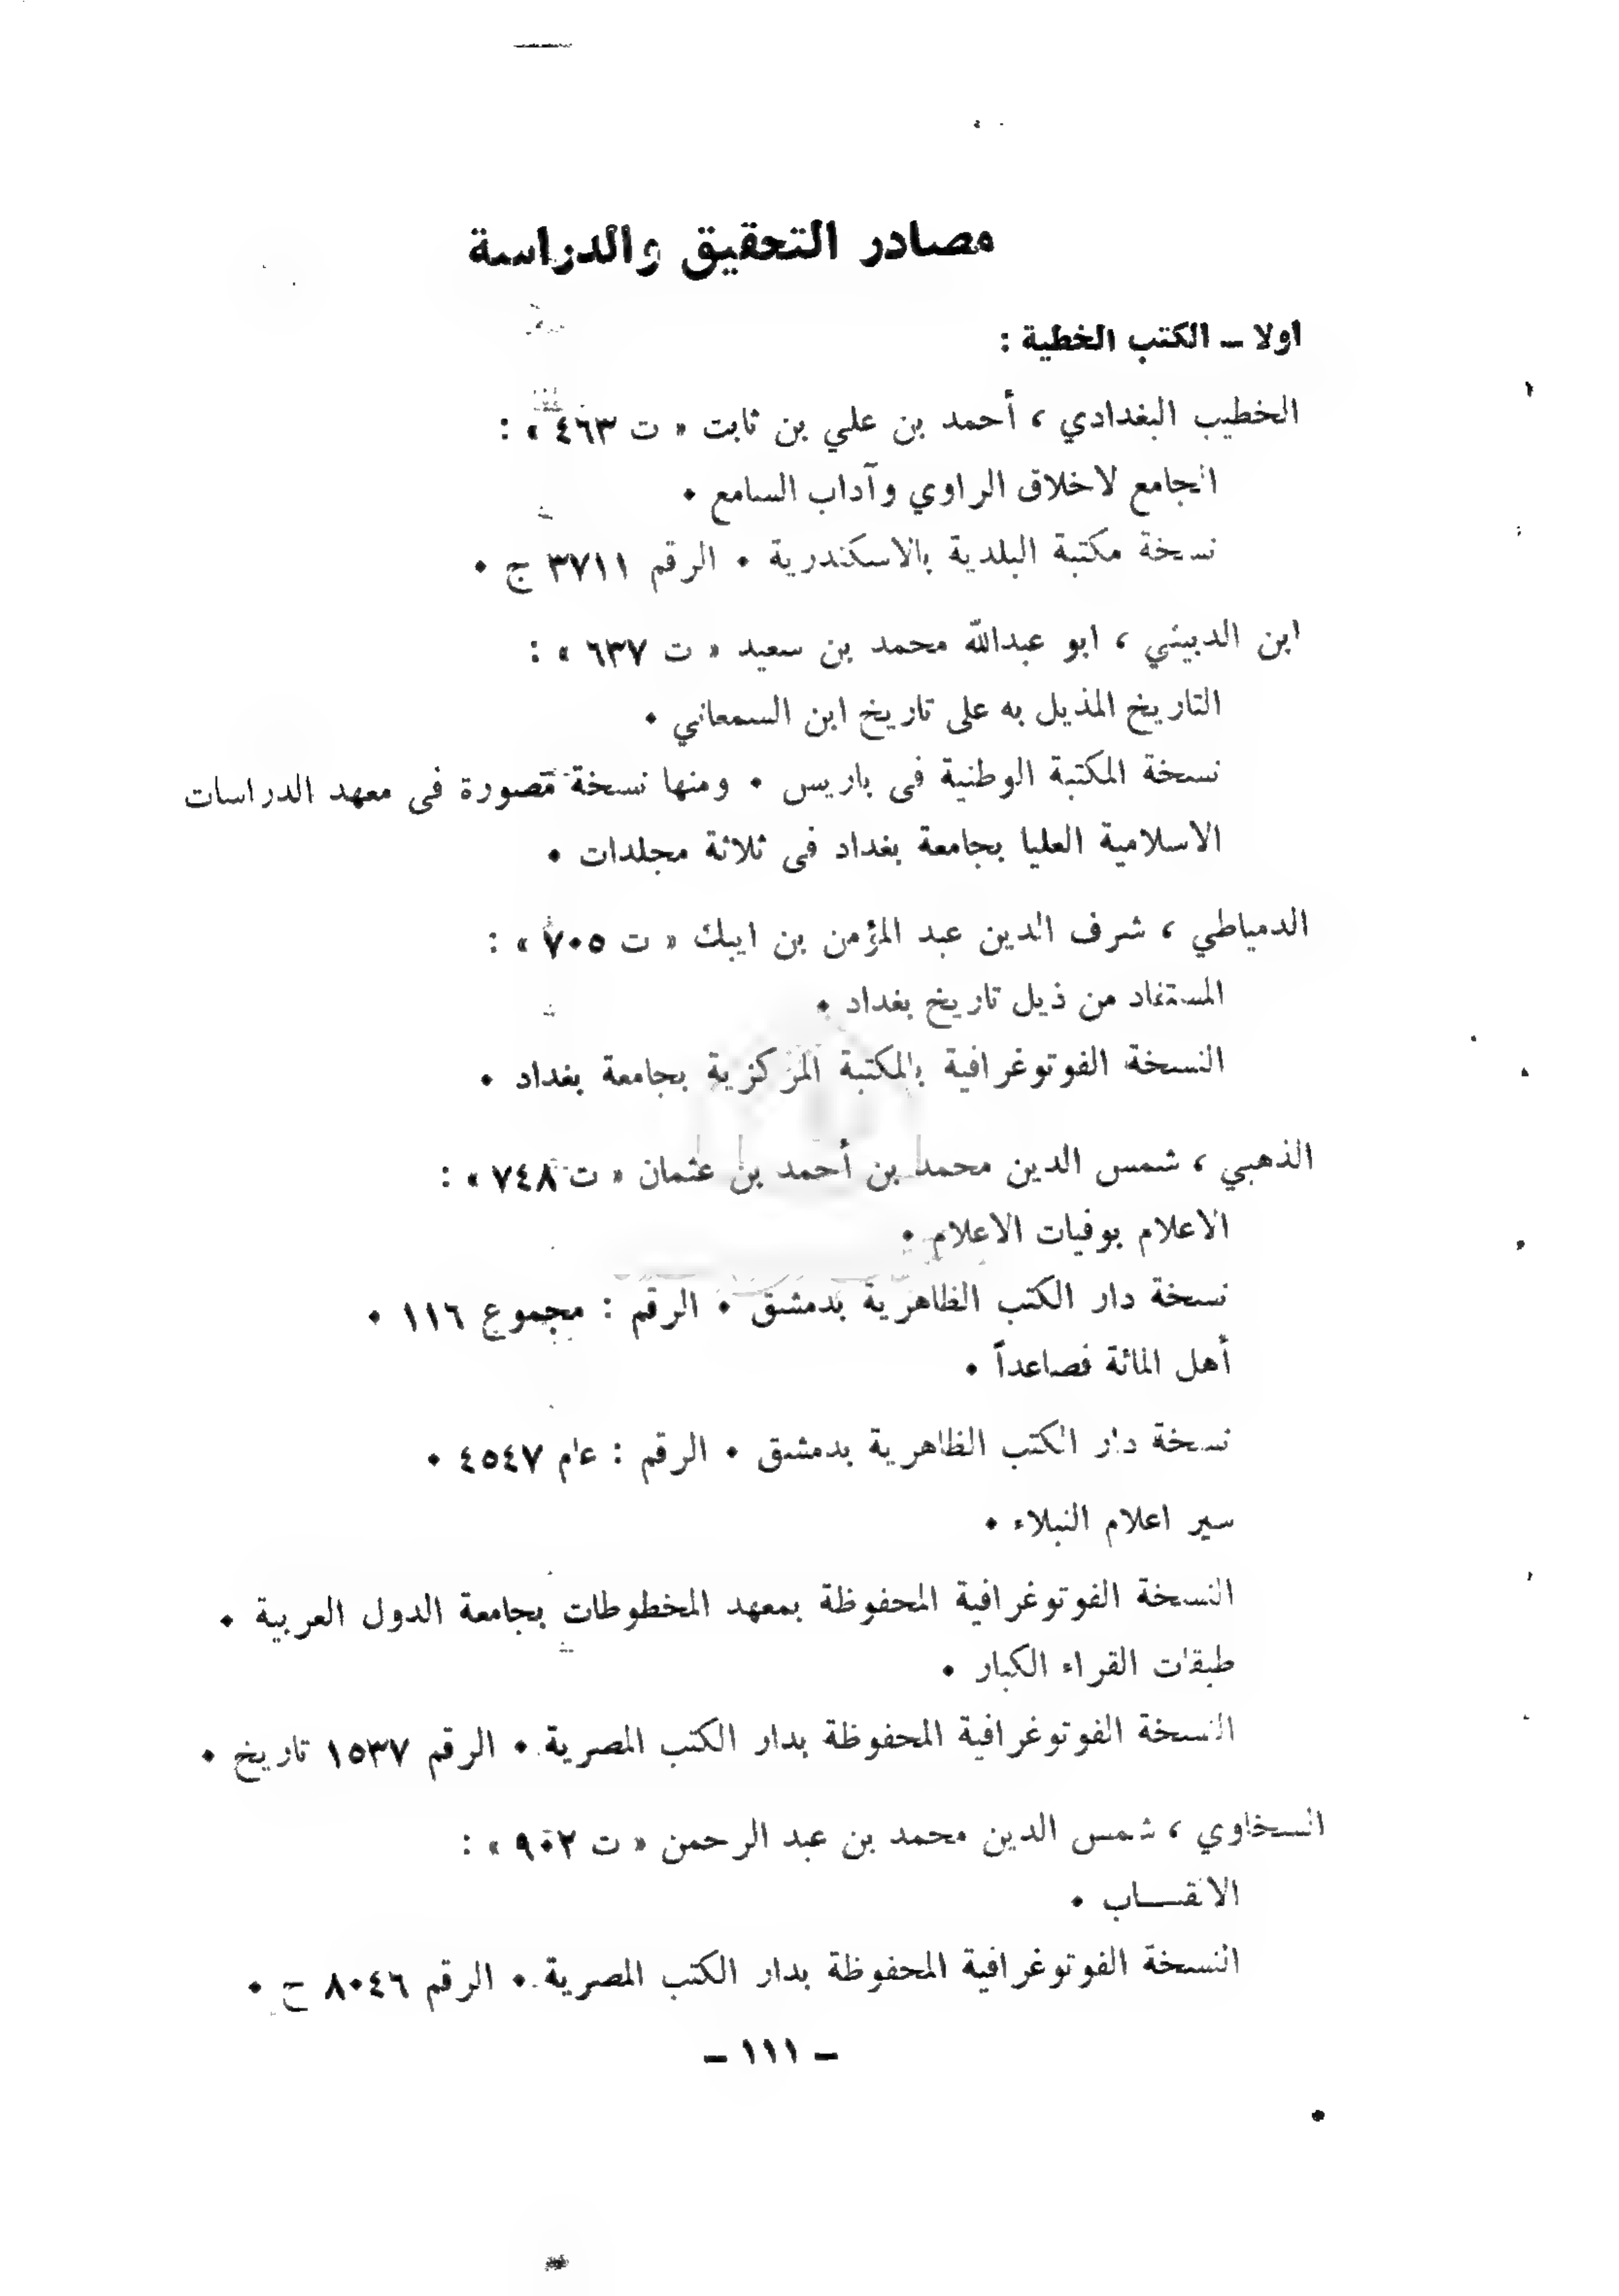 مصادر التحقيق والدراسة
اولا ــ الكتب الخطية :
الخطيب البغدادي ، أحمد بن علي بن ثابت « ت ٤٦٣ » :
الجامع لاخلاق الراوي وآداب السامع •
نسخة مكتبة البلدية بالاسكندرية • الرقم ٣٧١١ ج •
ابن الدبيثي ، ابو عبدالله محمد بن سعيد « ت ٦٣٧ » :
التاريخ المذيل به على تاريخ ابن السمعاني •
نسخة المكتبة الوطنية فى باريس • ومنها نسخة مصورة فى معهد الدراسات
الاسلامية العليا بجامعة بغداد فى ثلاثة مجلدات •
الدمياطي ، شرف الدين عبد المؤمن بن ايبك « ت ٧٠٥ » :
المستفاد من ذيل تاريخ بغداد •
النسخة الفوتوغرافية بالمكتبة المركزية بجامعة بغداد •
الذهبي ، شمس الدين محمد بن أحمد بن عثمان « ت ٧٤٨ » :
الاعلام بوفيات الاعلام •
نسخة دار الكتب الظاهرية بدمشق • الرقم : مجموع ١١٦ •
أهل المائة فصاعداً •
نسخة دار الكتب الظاهرية بدمشق • الرقم : عام ٤٥٤٧ •
سير اعلام النبلاء •
النسخة الفوتوغرافية المحفوظة بمعهد المخطوطات بجامعة الدول العربية •
طبقات القراء الكبار •
النسخة الفوتوغرافية المحفوظة بدار الكتب المصرية • الرقم ١٥٣٧ تاريخ •
السخاوي ، شمس الدين محمد بن عبد الرحمن « ت ٩٠٢ » :
الالقـــاب •
النسخة الفوتوغرافية المحفوظة بدار الكتب المصرية • الرقم ٨٠٤٦ ح •
ــ ١١١ ــ